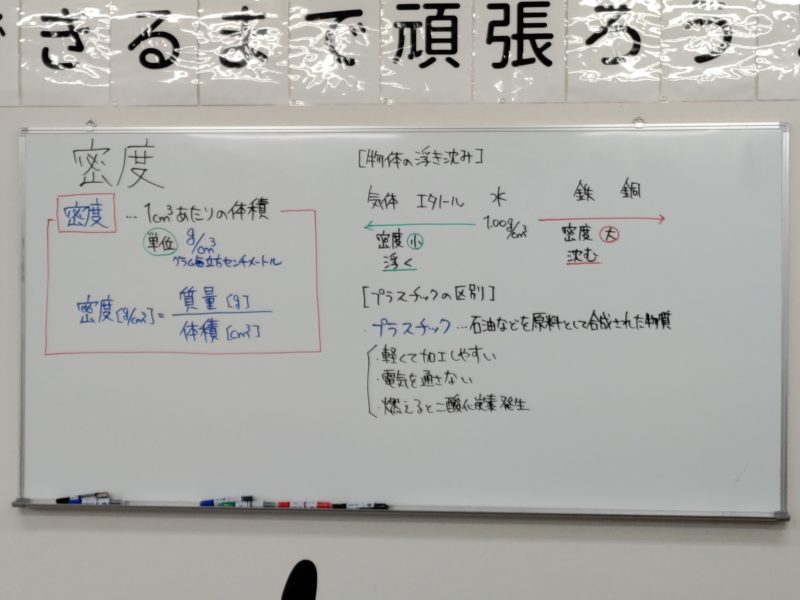 できるまで頑張ろう
密度
密度 … 1cm³あたりの体積
単位 g/cm³
グラム毎立方センチメートル
密度[g/cm³] = 質量[g] / 体積[cm³]
[物体の浮き沈み]
気体 エタノール 水 鉄 銅
1.00g/cm³
密度 小 密度 大
浮く 沈む
[プラスチックの区別]
・プラスチック…石油などを原料として合成された物質
・軽くて加工しやすい
・電気を通さない
・燃えると二酸化炭素発生